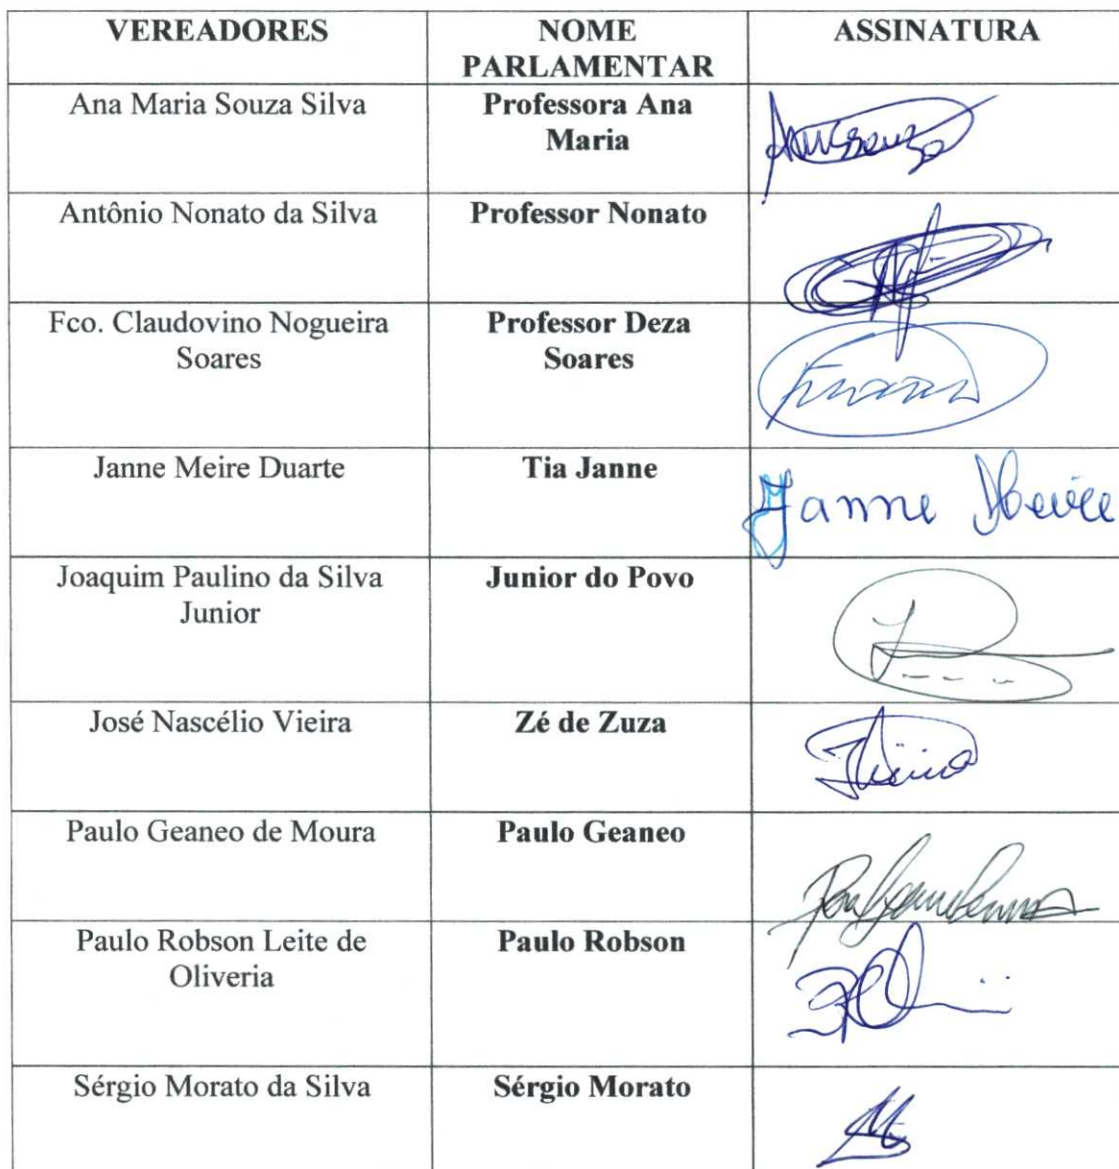 VEREADORES
NOME
PARLAMENTAR
ASSINATURA
Ana Maria Souza Silva
Professora Ana
Maria
Antônio Nonato da Silva
Professor Nonato
Fco. Claudovino Nogueira
Soares
Professor Deza
Soares
Janne Meire Duarte
Tia Janne
Janne Meire
Joaquim Paulino da Silva
Junior
Junior do Povo
José Nascélio Vieira
Zé de Zuza
Paulo Geaneo de Moura
Paulo Geaneo
Paulo Robson Leite de
Oliveria
Paulo Robson
Sérgio Morato da Silva
Sérgio Morato